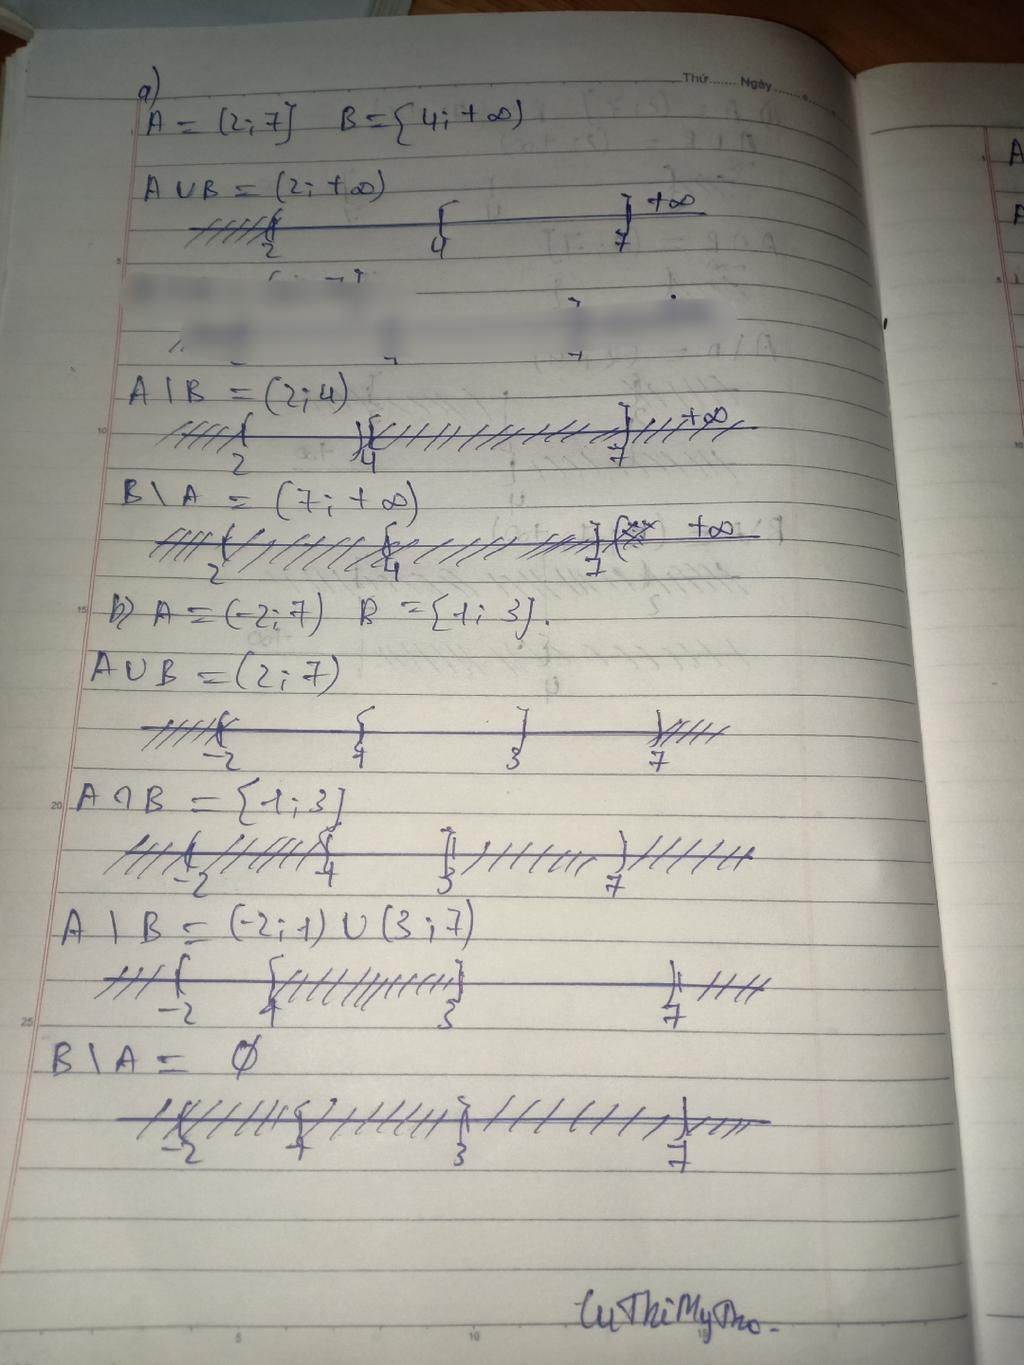 Thứ....... Ngày.......
a)
A = (2; 7] B = [4; +∞)
A ∪ B = (2; +∞)
2 4 7 +∞
A \ B = (2; 4)
2 4 7 +∞
B \ A = (7; +∞)
2 4 7 +∞
b) A = (-2; 7) B = [1; 3].
A ∪ B = (2; 7)
-2 1 3 7
A ∩ B = [1; 3]
-2 1 3 7
A \ B = (-2; 1) ∪ (3; 7)
-2 1 3 7
B \ A = ∅
-2 1 3 7